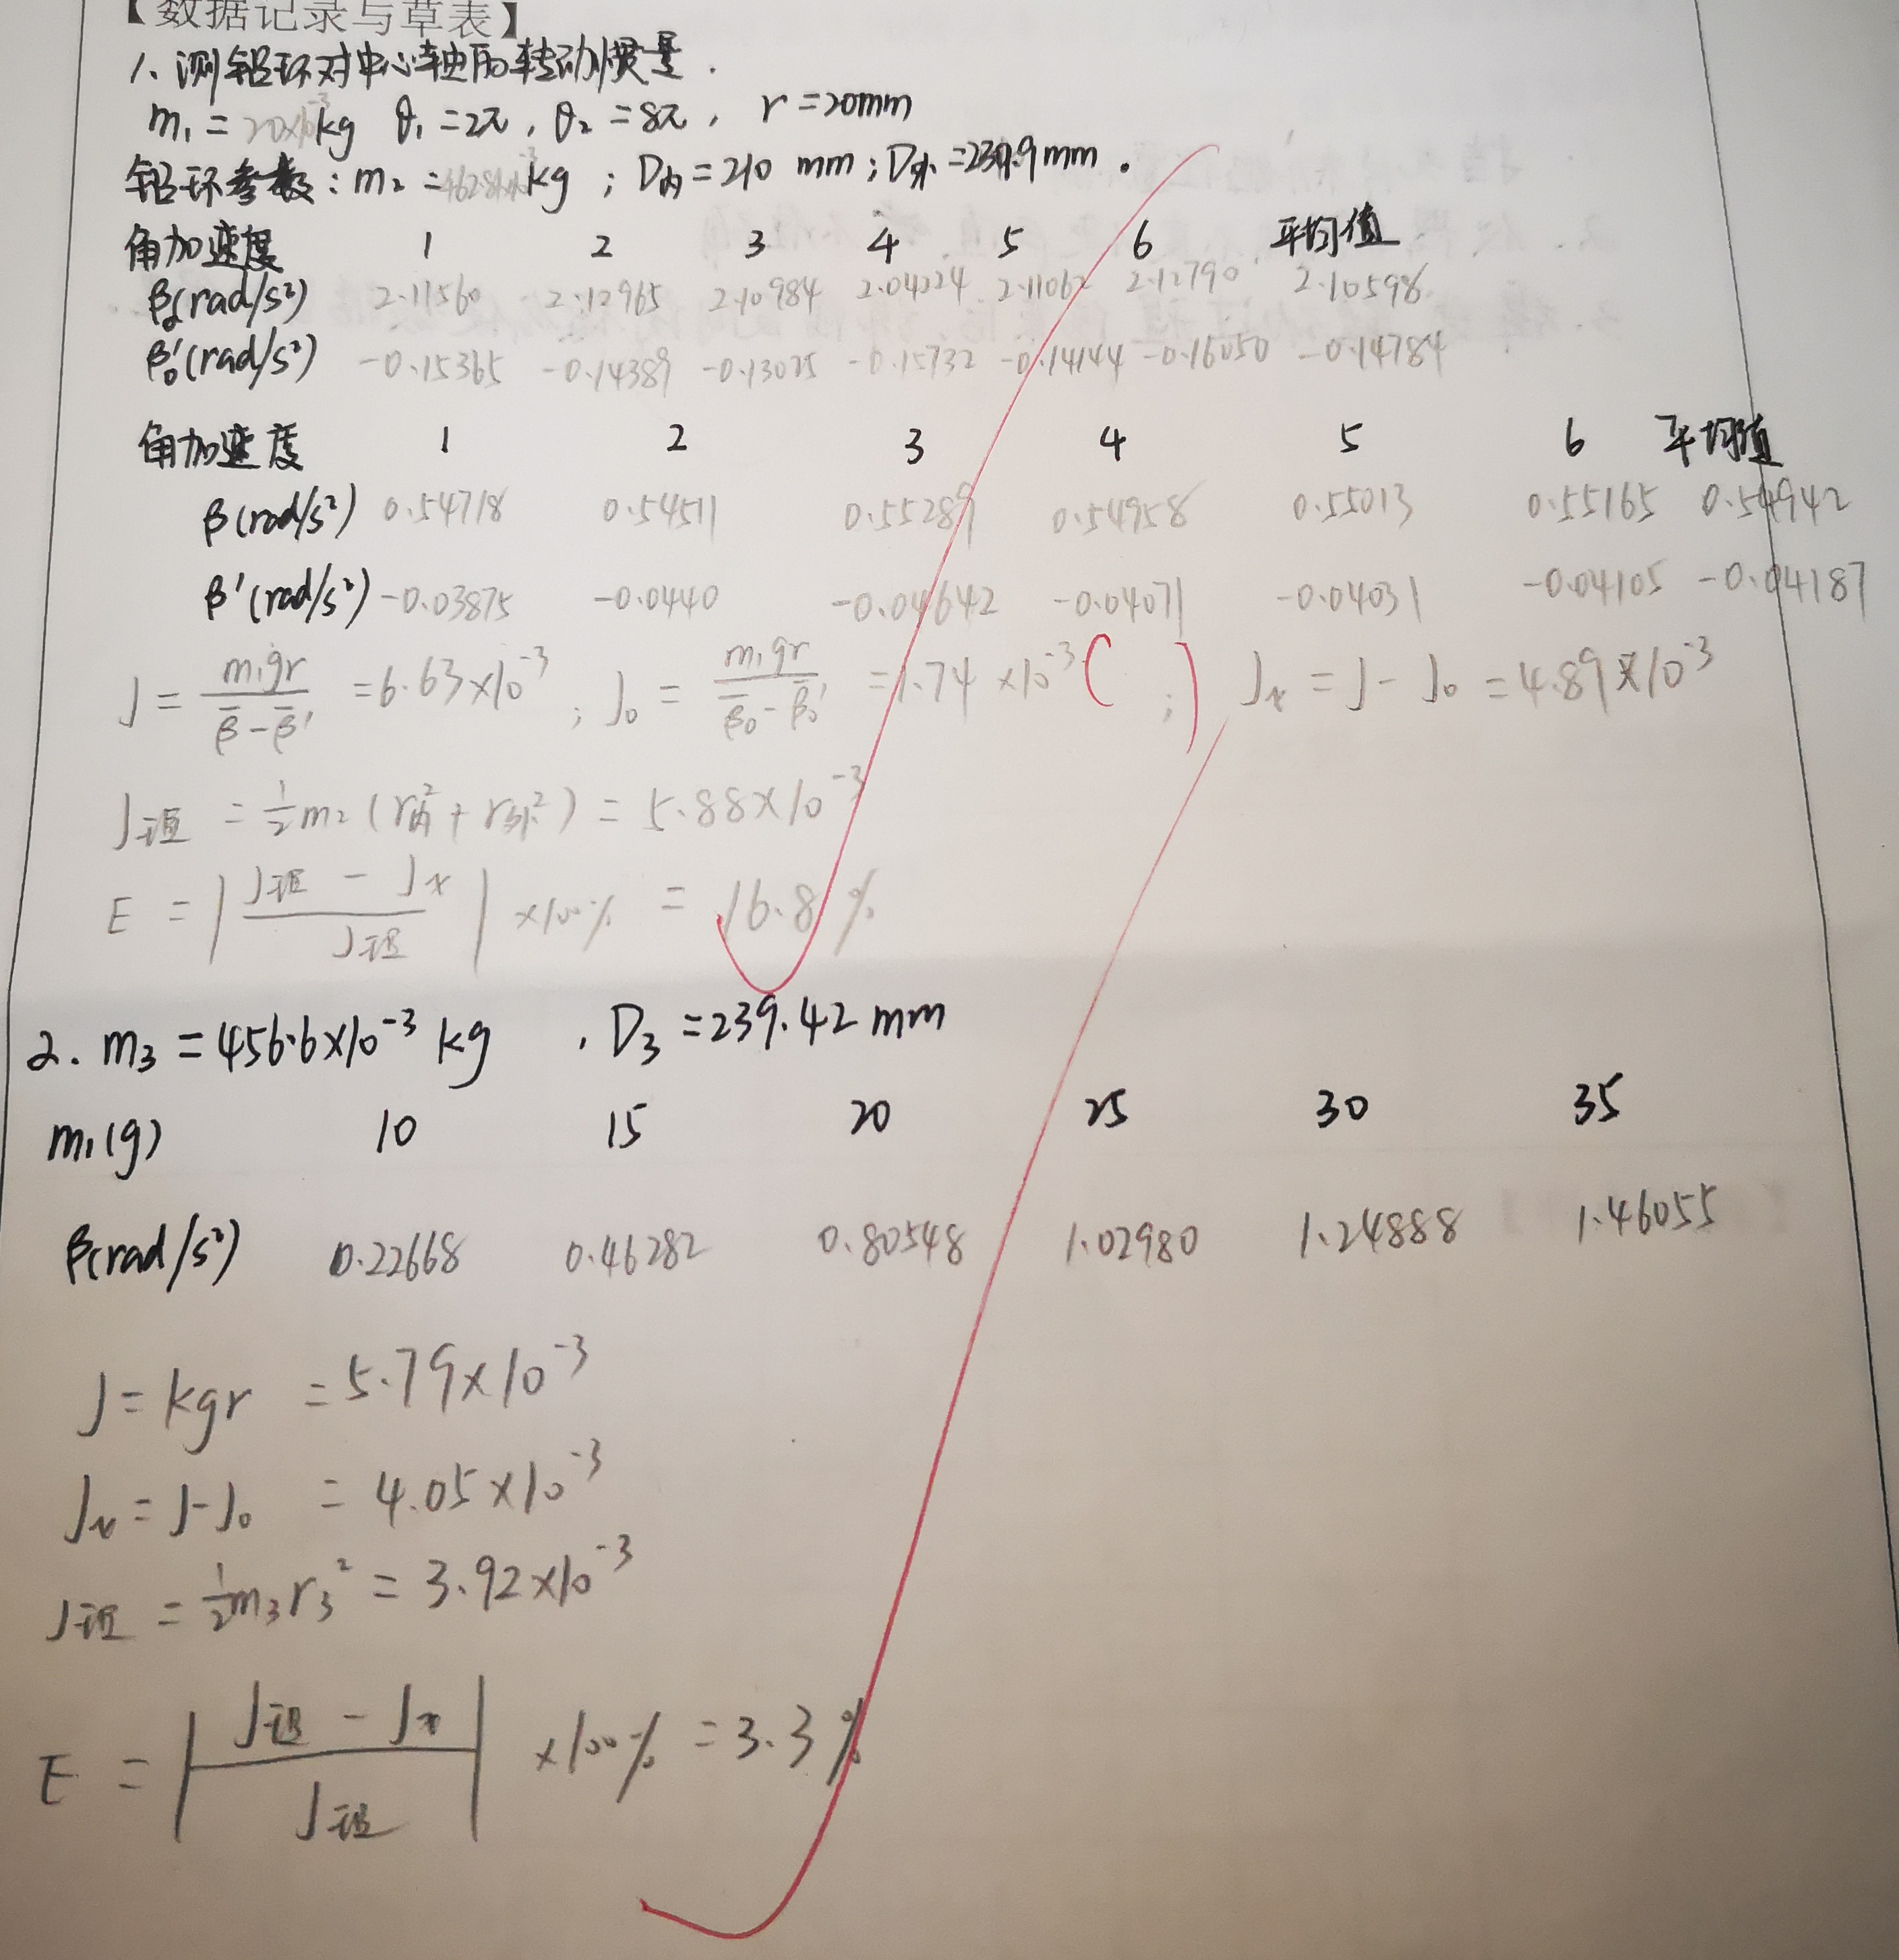 【数据记录与草表】
1、测铝环对中心轴的转动惯量.
m₁ = 20×10⁻³kg θ₁ = 2π, θ₂ = 8π, r = 20mm
铝环参数: m₂ = kg; D内 = 210 mm; D外 = 239.9mm.
角加速度 1 2 3 4 5 6 平均值
β₀(rad/s²) 2.11560 2.12965 2.10984 2.04224 2.11062 2.12790 2.10598
β₀'(rad/s²) -0.15365 -0.14389 -0.13025 -0.15732 -0.14144 -0.16050 -0.14784
角加速度 1 2 3 4 5 6 平均值
β(rad/s²) 0.54718 0.54511 0.55289 0.54958 0.55013 0.55165 0.54942
β'(rad/s²) -0.03875 -0.0440 -0.04642 -0.04071 -0.04031 -0.04105 -0.04187
J = m₁gr/(β̄ - β̄') = 6.63×10⁻³; J₀ = m₁gr/(β̄₀ - β̄₀') = 1.74×10⁻³ ( ; ) Jx = J - J₀ = 4.89×10⁻³
J理 = ½m₂(r内² + r外²) = 5.88×10⁻³
E = |(J理 - Jx)/J理| ×100% = 16.8%
2. m₃ = 456.6×10⁻³ kg , D₃ = 239.42 mm
m₁(g) 10 15 20 25 30 35
β(rad/s²) 0.22668 0.46282 0.80548 1.02980 1.24888 1.46055
J = kgr = 5.79×10⁻³
Jx = J - J₀ = 4.05×10⁻³
J理 = ½m₃r₃² = 3.92×10⁻³
E = |(J理 - Jx)/J理| ×100% = 3.3%